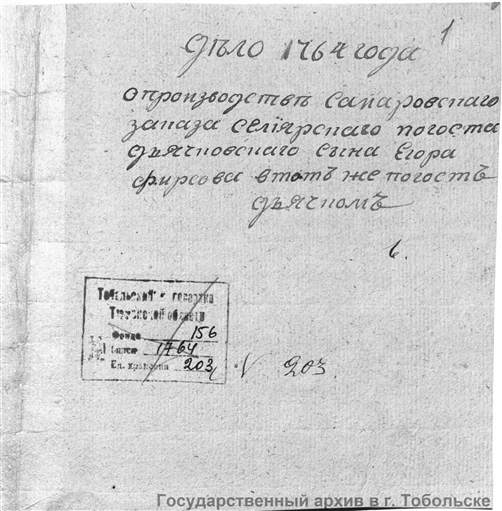 1
дѣло 1764 года
о производствѣ Самаровскаго
заказа Селiярскаго погоста
дьячковскаго сына Егора
фирсова втотъ же погостъ
дьячкомъ
6.
Тобольский госархив
Тюменской области
Фонд 156
Опись 1764
Ед. хранения 203
N 203
Государственный архив в г. Тобольске